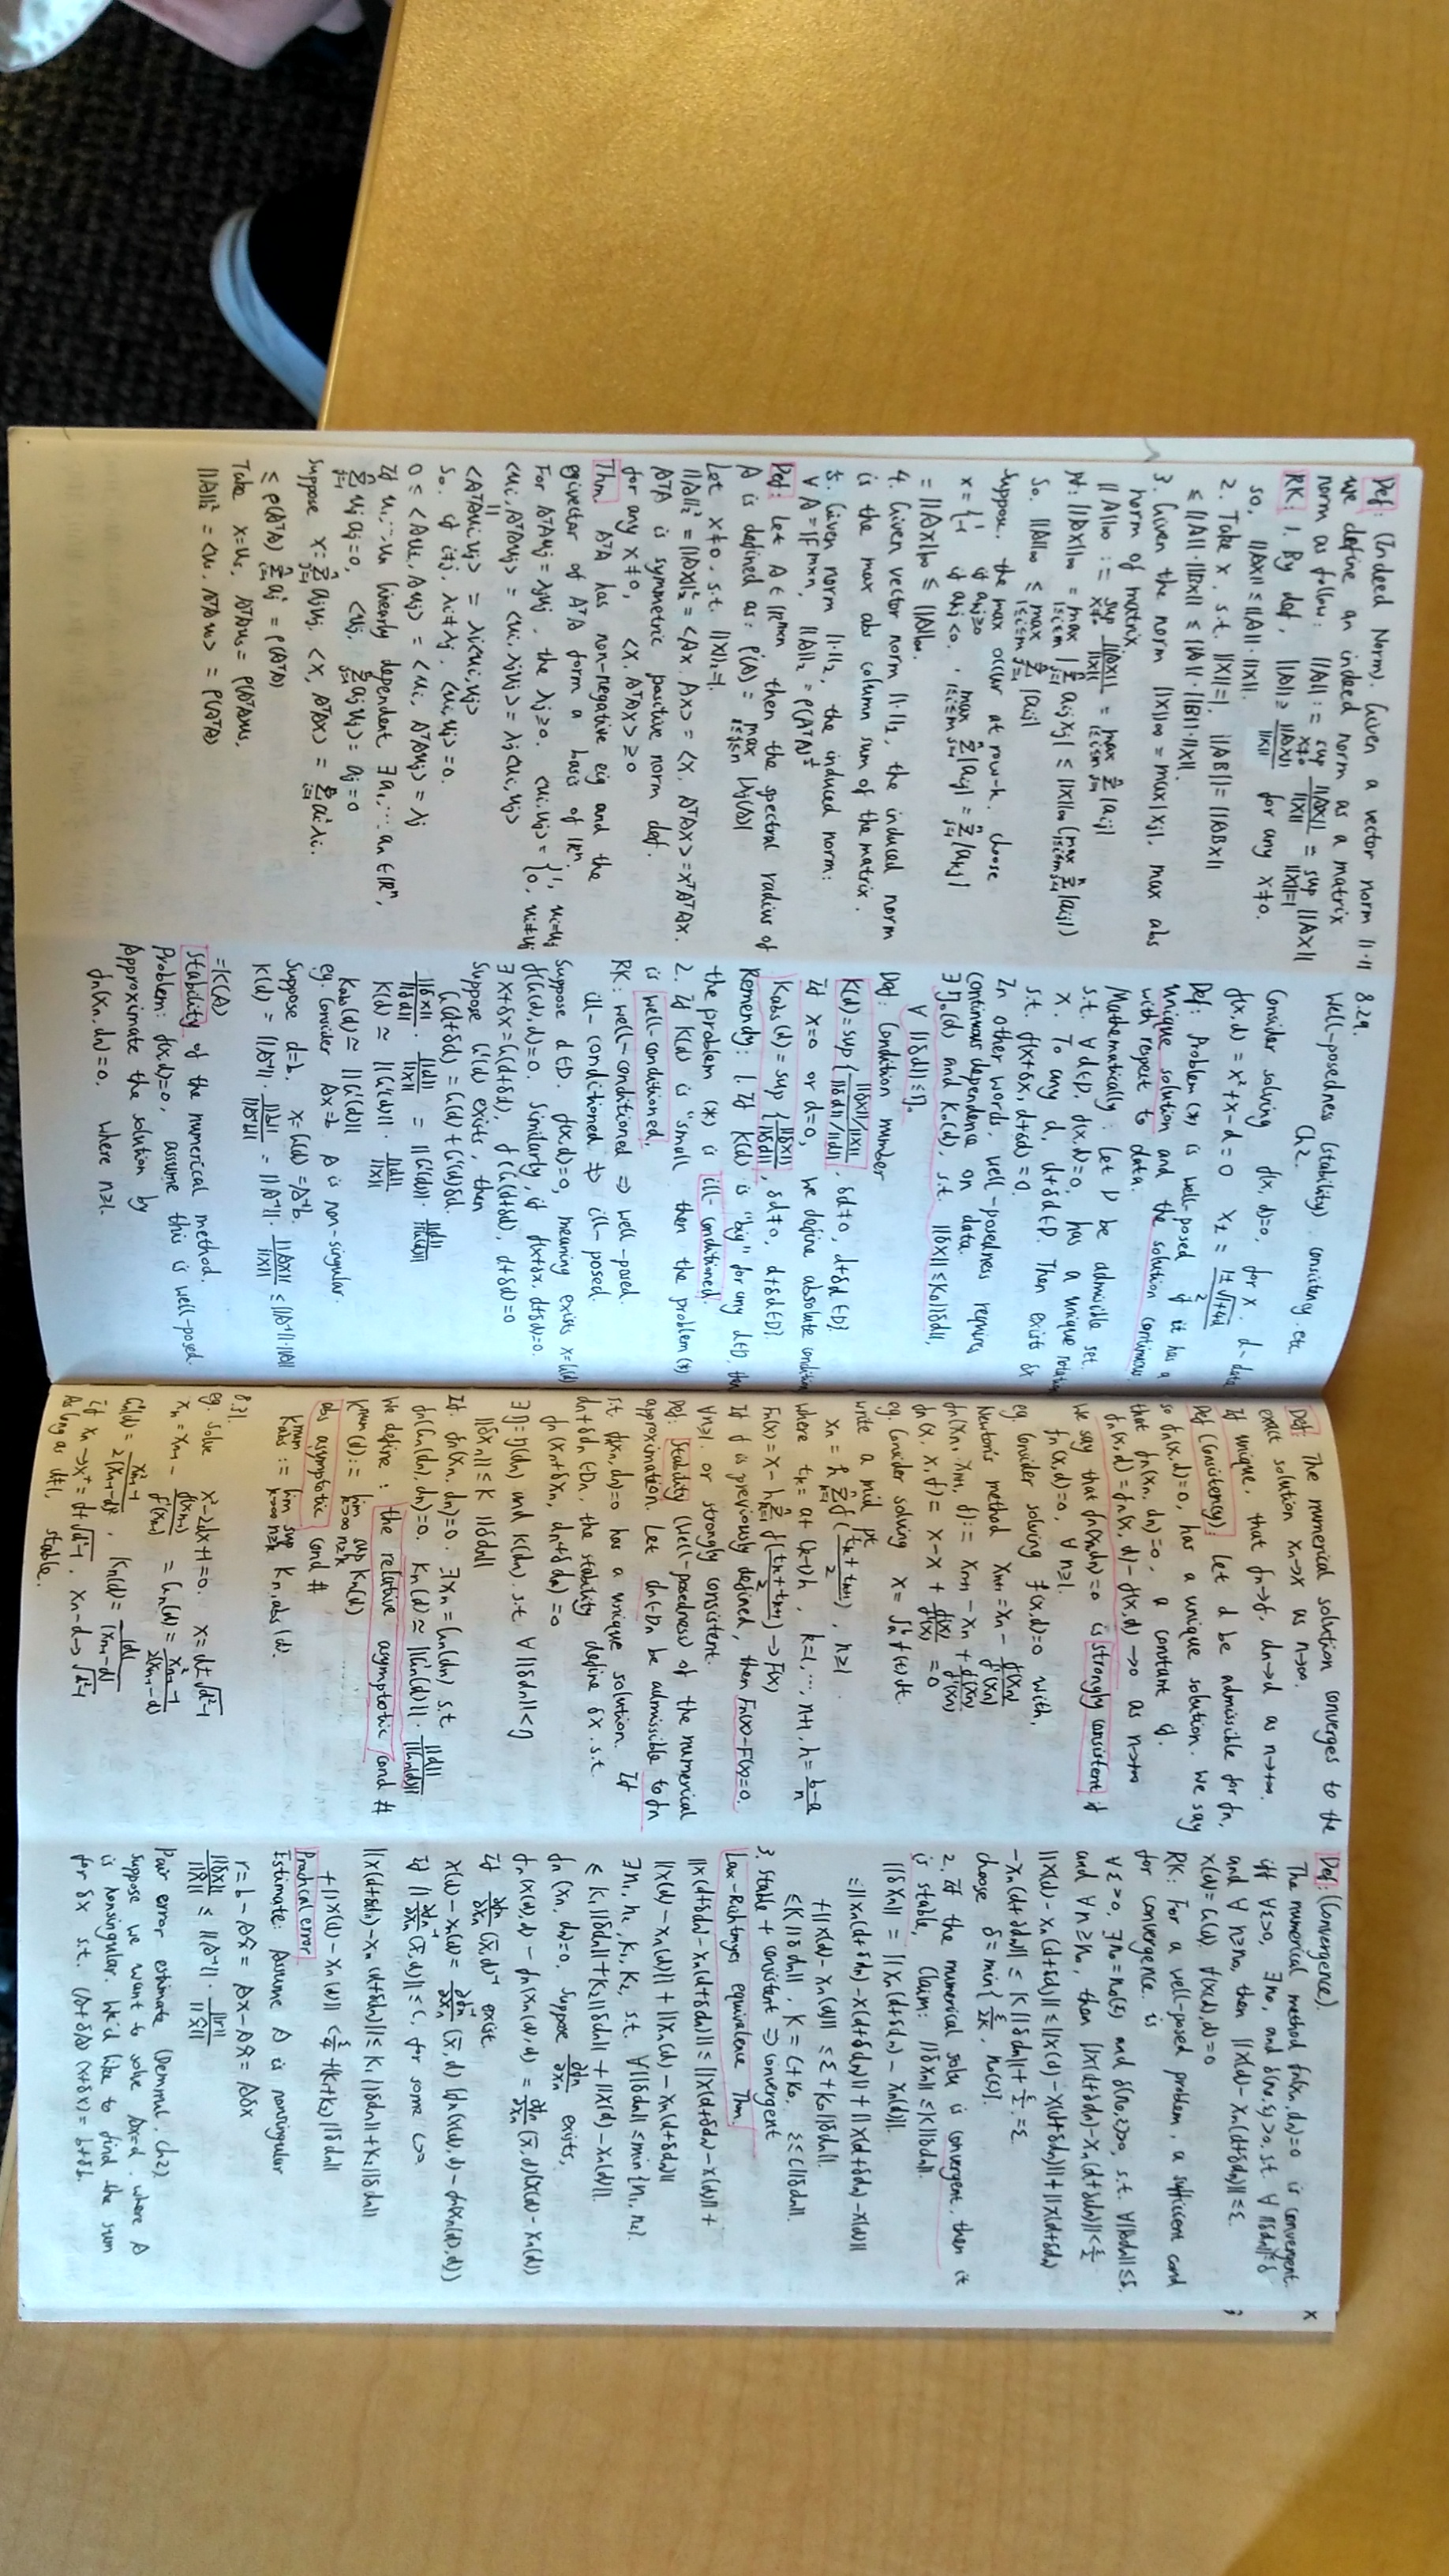 Def: (Indeed Norm). Given a vector norm ||·||
we define an indeed norm as a matrix
norm as follow: ||A|| := sup_{x≠0} ||Ax||/||x|| = sup_{||x||=1} ||Ax||
RK: 1. By def, ||A|| ≥ ||Ax||/||x|| for any x≠0.
so, ||Ax|| ≤ ||A||·||x||.
2. Take x, s.t. ||x||=1, ||AB|| = ||ABx||
≤ ||A||·||Bx|| ≤ ||A||·||B||·||x||.
3. Given the norm ||x||∞ = max|xj|, max abs
norm of matrix.
||A||∞ := sup_{x≠0} ||Ax||/||x|| = max_{1≤i≤m} Σ_{j=1}^n |aij|
Pf: ||Ax||∞ = max_{1≤i≤m} |Σ_{j=1}^n aij xj| ≤ ||x||∞ (max_{1≤i≤m} Σ_{j=1}^n |aij|)
So, ||A||∞ ≤ max_{1≤i≤m} Σ_{j=1}^n |aij|
Suppose, the max occur at row-k. choose
x = { 1 if akj≥0, -1 if akj<0. , max_{1≤i≤m} Σ_{j=1}^n |aij| = Σ_{j=1}^n |akj|
= ||Ax||∞ ≤ ||A||∞.
4. Given vector norm ||·||1, the induced norm
is the max abs column sum of the matrix.
5. Given norm ||·||2, the induced norm:
∀ A = F^{m×n}, ||A||2 = ρ(AᵀA)^{1/2}
Def: Let A ∈ R^{n×n} then the spectral radius of
A is defined as: ρ(A) = max_{1≤j≤n} |λj(A)|
Let x≠0, s.t. ||x||2=1.
||A||2² = ||Ax||2² = <Ax, Ax> = <x, AᵀAx> = xᵀAᵀAx.
AᵀA is symmetric positive norm def.
for any x≠0, <x, AᵀAx> ≥ 0
Thm. AᵀA has non-negative eig and the
egivector of AᵀA form a basis of Rⁿ.
For AᵀAuj = λjuj, the λj≥0. <ui,uj> = { 1, ui=uj 0, ui≠uj
<ui, AᵀAuj> = <ui, λjuj> = λj<ui,uj>
||
<AᵀAui,uj> = λi<ui,uj>
So, if i≠j, λi≠λj, <ui,uj>=0.
0 ≤ <Aui, Auj> = <ui, AᵀAuj> = λj
If u1,···un linearly dependent ∃ a1,··· an ∈ Rⁿ,
Σ_{j=1}^n ujaj=0, <uj, Σ_{j=1}^n ajuj> = aj = 0
suppose x = Σ_{j=1}^n ajuj, <x, AᵀAx> = Σ_{i=1}^n ai²λi.
≤ ρ(AᵀA) Σ_{i=1}^n aj² = ρ(AᵀA)
Take x=us, AᵀAus = ρ(AᵀA)us,
||A||2² = <us, AᵀAus> = ρ(AᵀA)
8.29. Ch2.
Well-posedness (stability). consitency. etc
Consider solving f(x,d)=0, for x. d-data
f(x,d) = x²+x-d=0 x± = 1±√1+4d / 2
Def: Problem (*) is well-posed if it has a
unique solution and the solution continuous
with respect to data.
Mathematically: let D be admisible set.
s.t. ∀ d∈D, f(x,d)=0, has a unique
x. To any d, d+δd∈D. Then exists δx
s.t. f(x+δx, d+δd)=0.
In other words, well-posedness requires
continuous dependence on data.
∃ η0(d) and K0(d), s.t. ||δx|| ≤ K0||δd||,
∀ ||δd|| ≤ η0
Def: Condition number
K(d) = sup { ||δx||/||x|| / ||δd||/||d|| , δd≠0, d+δd∈D}.
If x=0 or d=0, we define absolute condition
Kabs(d) = sup { ||δx||/||δd|| , δd≠0, d+δd∈D}.
Remendy: 1. If K(d) is "big" for any d∈D, then
the problem (*) is ill-conditioned.
2. If K(d) is "small" then the problem (*)
is well-conditioned.
RK: well-conditioned ⇒ well-posed.
ill-conditioned ⇏ ill-posed.
Suppose d∈D. f(x,d)=0, meaning exists x=G(d)
f(G(d),d)=0. Similarly, if f(x+δx, d+δd)=0.
∃ x+δx = G(d+δd), f(G(d+δd), d+δd)=0
Suppose G'(d) exists, then
G(d+δd) = G(d) + G'(d)δd
||δx||/||δd|| · ||d||/||x|| = ||G'(d)|| · ||d||/||G(d)||
K(d) ≃ ||G'(d)|| · ||d||/||x||
Kabs(d) ≃ ||G'(d)||
eg. Consider Ax=b A is non-singular.
Suppose d=b. x=G(d)=A⁻¹b.
K(d) = ||A⁻¹|| · ||d||/||A⁻¹d|| = ||A⁻¹|| · ||Ax||/||x|| ≤ ||A⁻¹||·||A||
=K(A)
Stability of the numerical method.
Problem: f(x,d)=0, assume this is well-posed.
Approximate the solution by
fn(xn,dn)=0, where n≥1.
Def: The numerical solution converges to the
exact solution xn→x as n→∞.
If unique, that fn→f, dn→d as n→+∞.
Def (Consitency): Let d be admissible for fn,
so fn(x,d)=0, has a unique solution. We say
that fn(xn,dn)=0, a constant if.
fn(x,d) = fn(x,d)-f(x,d) → 0 as n→+∞
We say that fn(xn,dn)=0 is strongly consistent if
fn(x,d)=0, ∀ n≥1.
eg. Consider solving f(x,d)=0 with,
Newton's method xn+1 = xn - f(xn)/f'(xn)
fn(xn, xn+1, f) := xn+1 - xn + f(xn)/f'(xn)
fn(x, x, f) = x-x + f(x)/f'(x) = 0
eg. Consider solving x = ∫ₐᵇ f(t)dt.
write a mid pt
xn = h Σ_{k=1}^n f(tk+tk+1 / 2), n≥1.
where tk = a+(k-1)h, k=1,···,n+1, h = b-a / n
Fn(x) = x - h Σ_{k=1}^n f(tk+tk+1 / 2) → F(x)
If f is previously defined, then Fn(x)-F(x)=0,
∀n≥1. or strongly consistent.
Def: Stability (Well-posedness) of the numerical
approximation. Let dn∈Dn be admissible to fn
s.t. f(xn,dn)=0 has a unique solution. If
dn+δdn∈Dn, the stability define δx. s.t.
fn(xn+δxn, dn+δdn)=0
∃ η=η(dn) and K(dn). s.t ∀ ||δdn||<η
||δxn|| ≤ K ||δdn||
If: fn(xn,dn)=0. ∃ xn=Gn(dn) s.t
fn(Gn(dn),dn)=0. Kn(d) ≃ ||G'n(d)|| · ||d||/||Gn(d)||
We define: the relative asymptotic cond #
Kⁿᵘᵐ(d) := lim_{k→∞} sup_{n≥k} Kn(d)
abs asymptotic cond #
Kⁿᵘᵐabs := lim_{k→∞} sup_{n≥k} Kn,abs(d).
8.31.
eg. solve x²-2dx+1=0. x = d±√d²-1
xn = xn-1 - f(xn-1)/f'(xn-1) = Gn(d) = x²n-1 -1 / 2(xn-1-d)
G'n(d) = x²n-1 -1 / 2(xn-1-d)², Kn(d) = |d| / |xn-d|
if xn→x⁺ = d+√d²-1, xn-d→√d²-1
As long as d≠1, stable.
Def: (Convergence).
The numerical method fn(xn,dn)=0 is convergent
iff ∀ε>0, ∃ n0, and δ(n0,ε)>0. s.t. ∀ ||δdn||≤δ
and ∀ n≥n0, then ||x(d)-xn(d+δdn)|| ≤ ε.
x(d)=G(d). f(x(d),d)=0
RK: For a well-posed problem, a sufficient cond
for convergence. is
∀ε>0, ∃n0=n0(ε) and δ(n0,ε)>0, s.t. ∀||δdn||≤δ,
and ∀n≥n0, then ||x(d+δdn)-xn(d+δdn)|| < ε/2
||x(d)-xn(d+δdn)|| ≤ ||x(d)-x(d+δdn)||+||x(d+δdn)
-xn(d+δdn)|| ≤ K||δdn||+ ε/2 = ε.
choose δ=min{ ε/2K, n0(ε)}.
2. If the numerical solu is convergent, then it
is stable, Claim: ||δxn|| ≤ K||δdn||.
||δxn|| = ||xn(d+δdn) - xn(d)||.
=||xn(d+δdn)-x(d+δdn)||+||x(d+δdn)-x(d)||
+||x(d)-xn(d)|| ≤ ε+K0||δdn||.
≤K||δdn||, K=C+K0. ε≤C||δdn||.
3. stable + consistent ⇒ convergent
Lax-Richtmyes equivalence Thm.
||x(d+δdn)-xn(d+δdn)|| ≤ ||x(d+δdn)-x(d)||+
||x(d)-xn(d)||+||xn(d)-xn(d+δdn)||
∃ n1, n2, K1, K2, s.t. ∀||δdn||≤min{n1,n2}.
≤ K1||δdn||+K2||δdn||+||x(d)-xn(d)||.
fn(xn,dn)=0. Suppose ∂fn/∂xn exists,
fn(x(d),d)-fn(xn(d),d) = ∂fn/∂xn (x̄,d)(x(d)-xn(d))
if ∂fn/∂xn (x̄,d)⁻¹ exist
x(d)-xn(d) = ∂fn/∂xn⁻¹ (x̄,d) (fn(x(d),d)-fn(xn(d),d))
if ||∂fn/∂xn⁻¹ (x̄,d)|| ≤ C, for some C>0
||x(d+δdn)-xn(d+δdn)|| ≤ K1||δdn||+K2||δdn||
+||x(d)-xn(d)|| < ε/2 +(K1+K2)||δdn||
Practical error
Estimate: Assume A is nonsingular
r=b-Ax̂ = Ax-Ax̂ = Aδx
||δx||/||x̂|| ≤ ||A⁻¹|| · ||r||/||x̂||
Pair error estimate (Demmul, ch2)
suppose we want to solve Ax=d. where A
is nonsingular. We'd like to find the sum
for δx s.t. (A+δA)(x+δx)=b+δb.